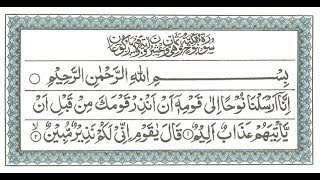 سورة نوح مكية وهي ثمان وعشرون اية وفيها ركوعان
بِسْمِ اللهِ الرَّحْمٰنِ الرَّحِيْمِ
اِنَّاۤ اَرْسَلْنَا نُوْحًا اِلٰى قَوْمِهٖۤ اَنْ اَنْذِرْ قَوْمَكَ مِنْ قَبْلِ اَنْ
يَّاْتِيَهُمْ عَذَابٌ اَلِيْمٌ ۝۱ قَالَ يٰقَوْمِ اِنِّىْ لَكُمْ نَذِيْرٌ مُّبِيْنٌ ۝۲ لا